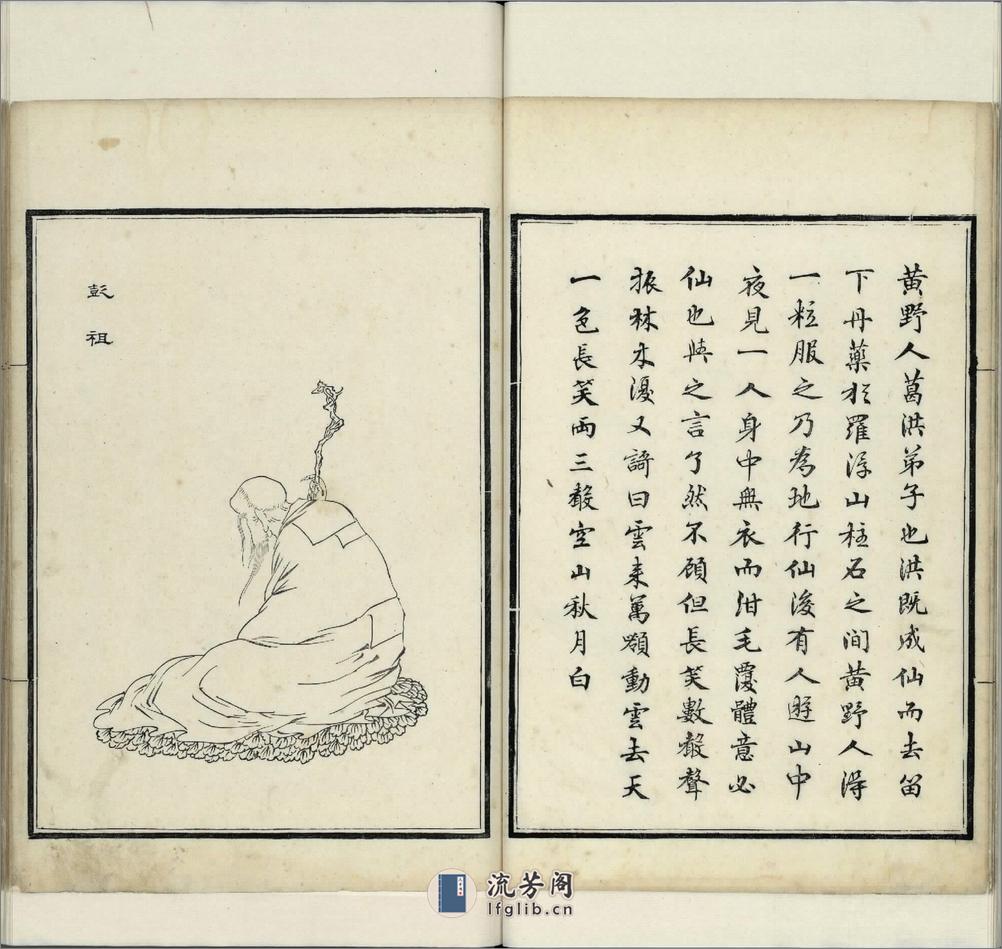 黄野人葛洪弟子也洪既成仙而去留
下丹藥於羅浮山柱石之间黄野人得
一粒服之乃為地行仙後有人遊山中
夜見一人身中無衣而绀毛覆體意必
仙也與之言了然不顧但長笑數聲聲
振林木復又謌曰雲来萬嶺動雲去天
一色長笑兩三聲空山秋月白
彭祖
流芳阁
lfglib.cn